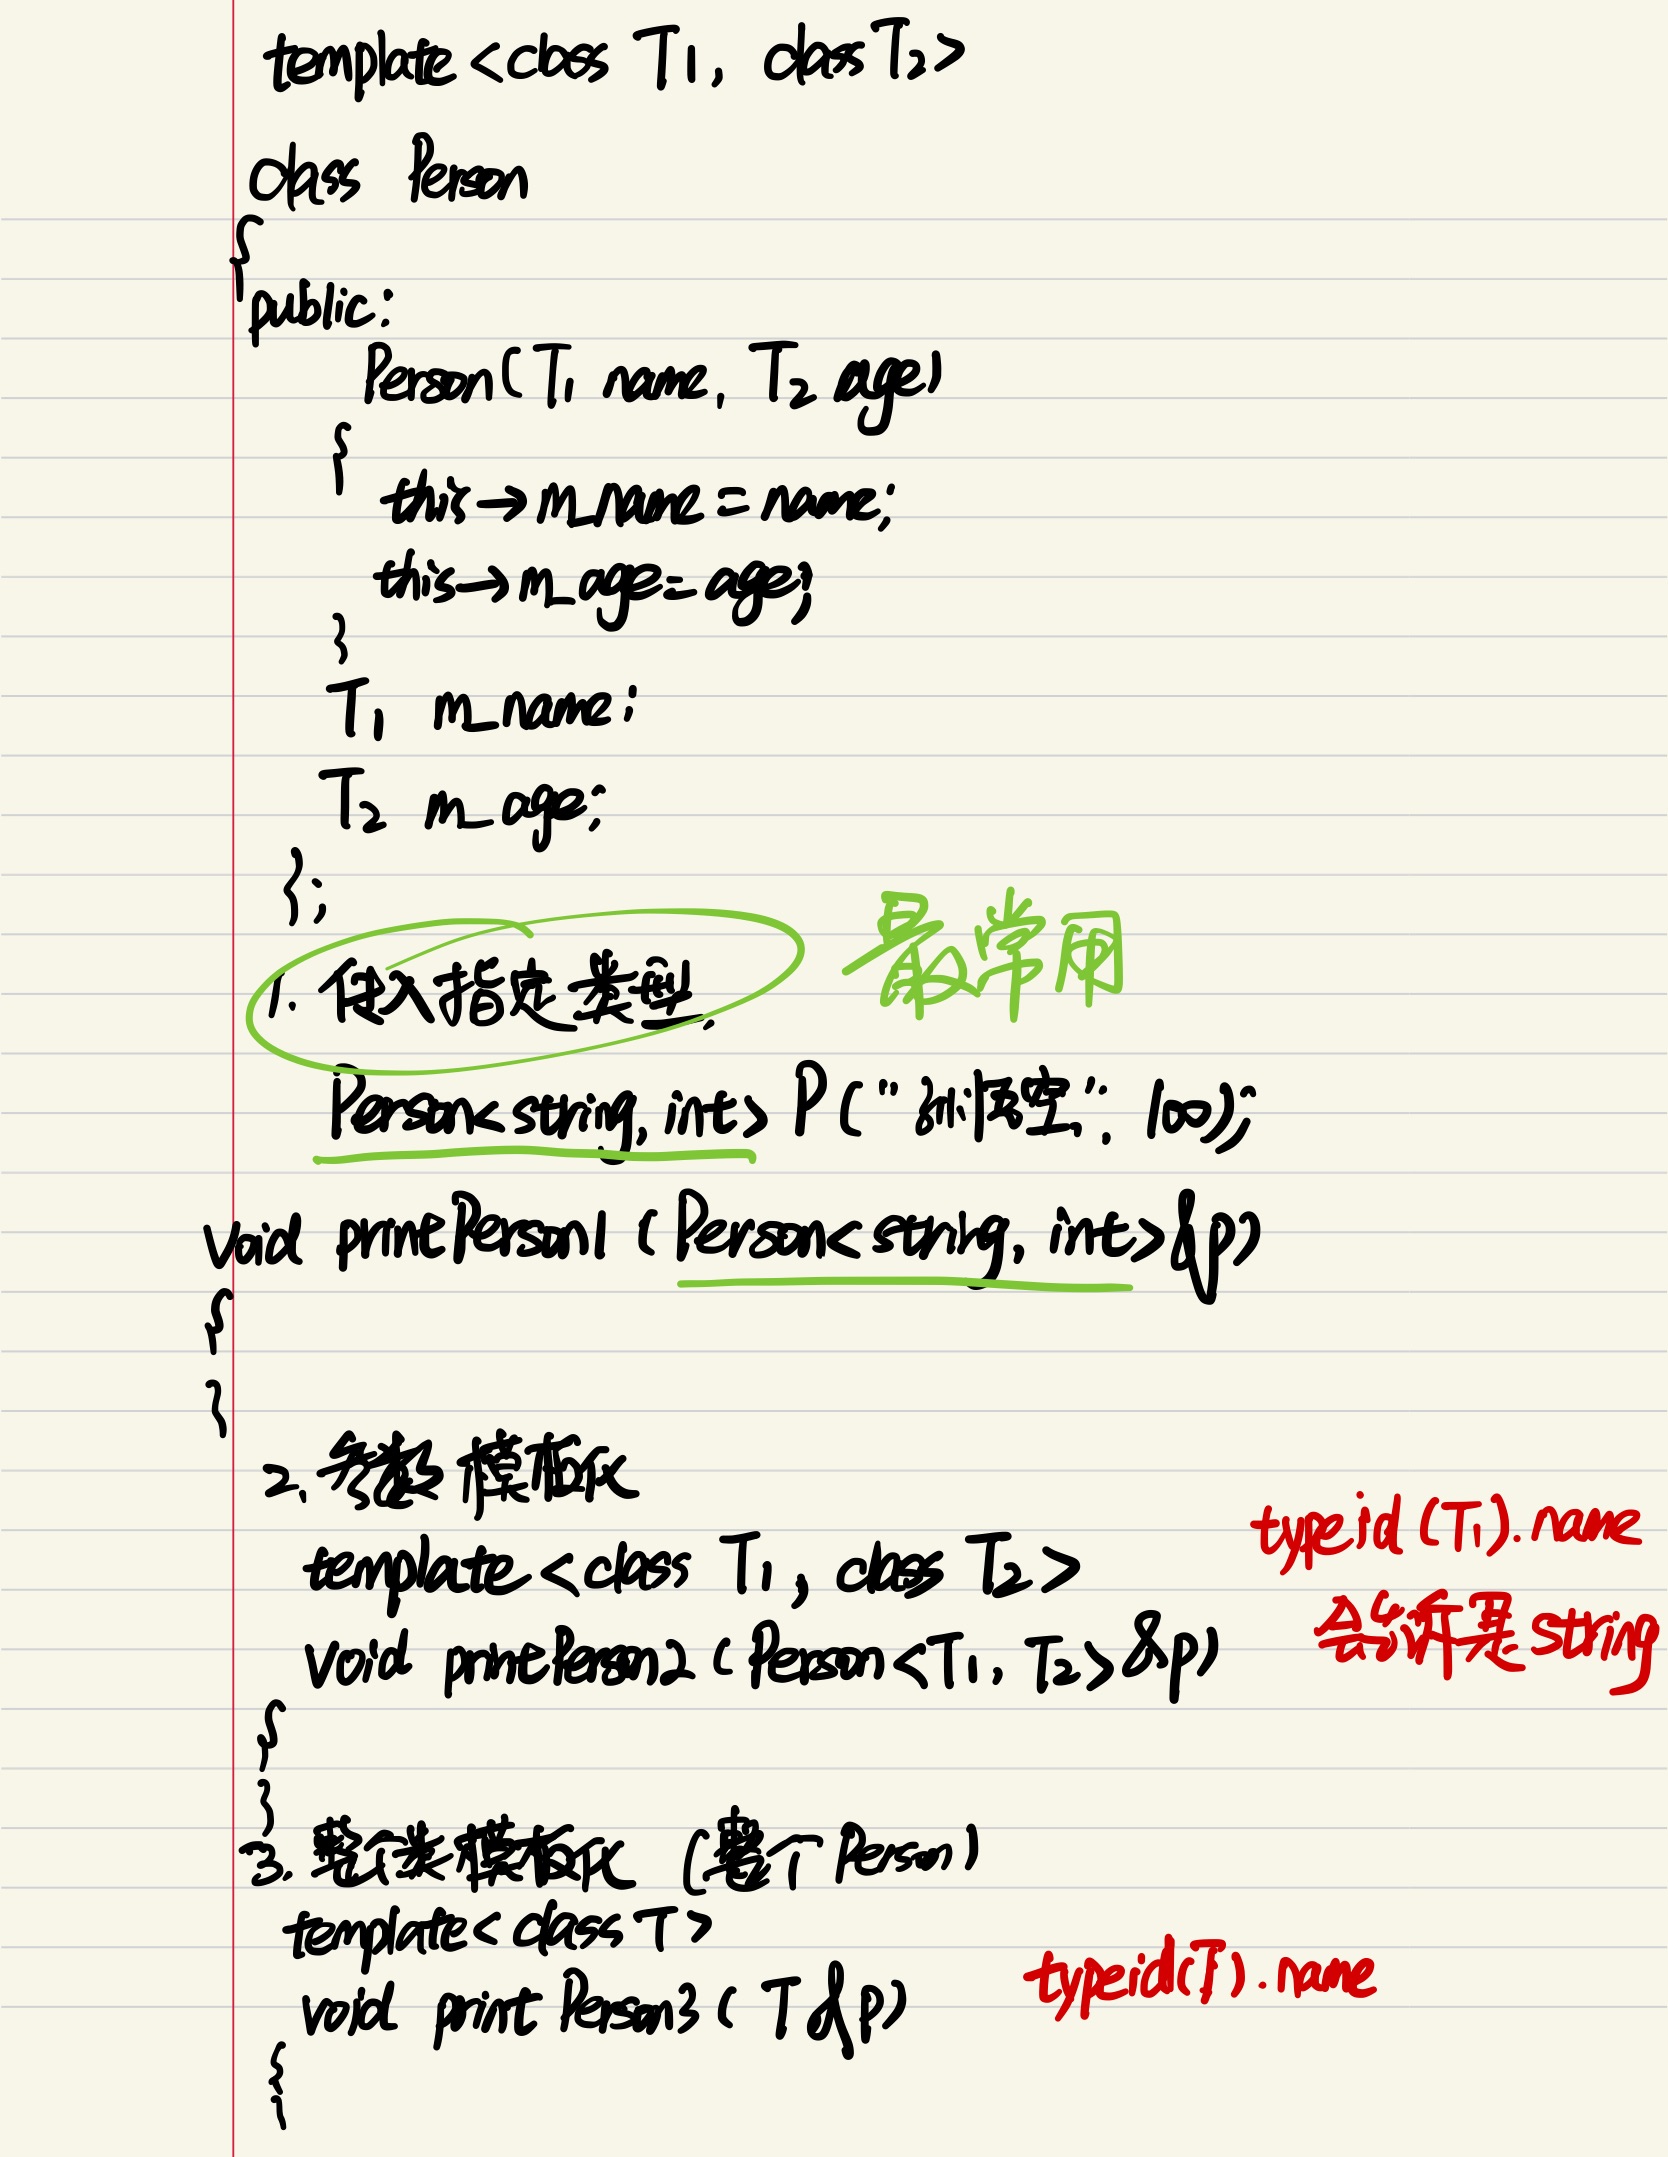 template <class T1, class T2>
class Person
{
public:
Person(T1 name, T2 age)
{
this→m_name = name;
this→m_age = age;
}
T1 m_name;
T2 m_age;
};
1. 传入指定类型. 最常用
Person<string, int> P("孙悟空", 100);
void printPerson1 (Person<string, int>&p)
{
}
2. 参数模板化
template <class T1, class T2> typeid (T1).name
void printPerson2 (Person<T1, T2>&p) 会告诉是string
{
}
3. 整个类模板化 (整个Person)
template<class T>
void printPerson3 (T&p) typeid(T).name
{
}